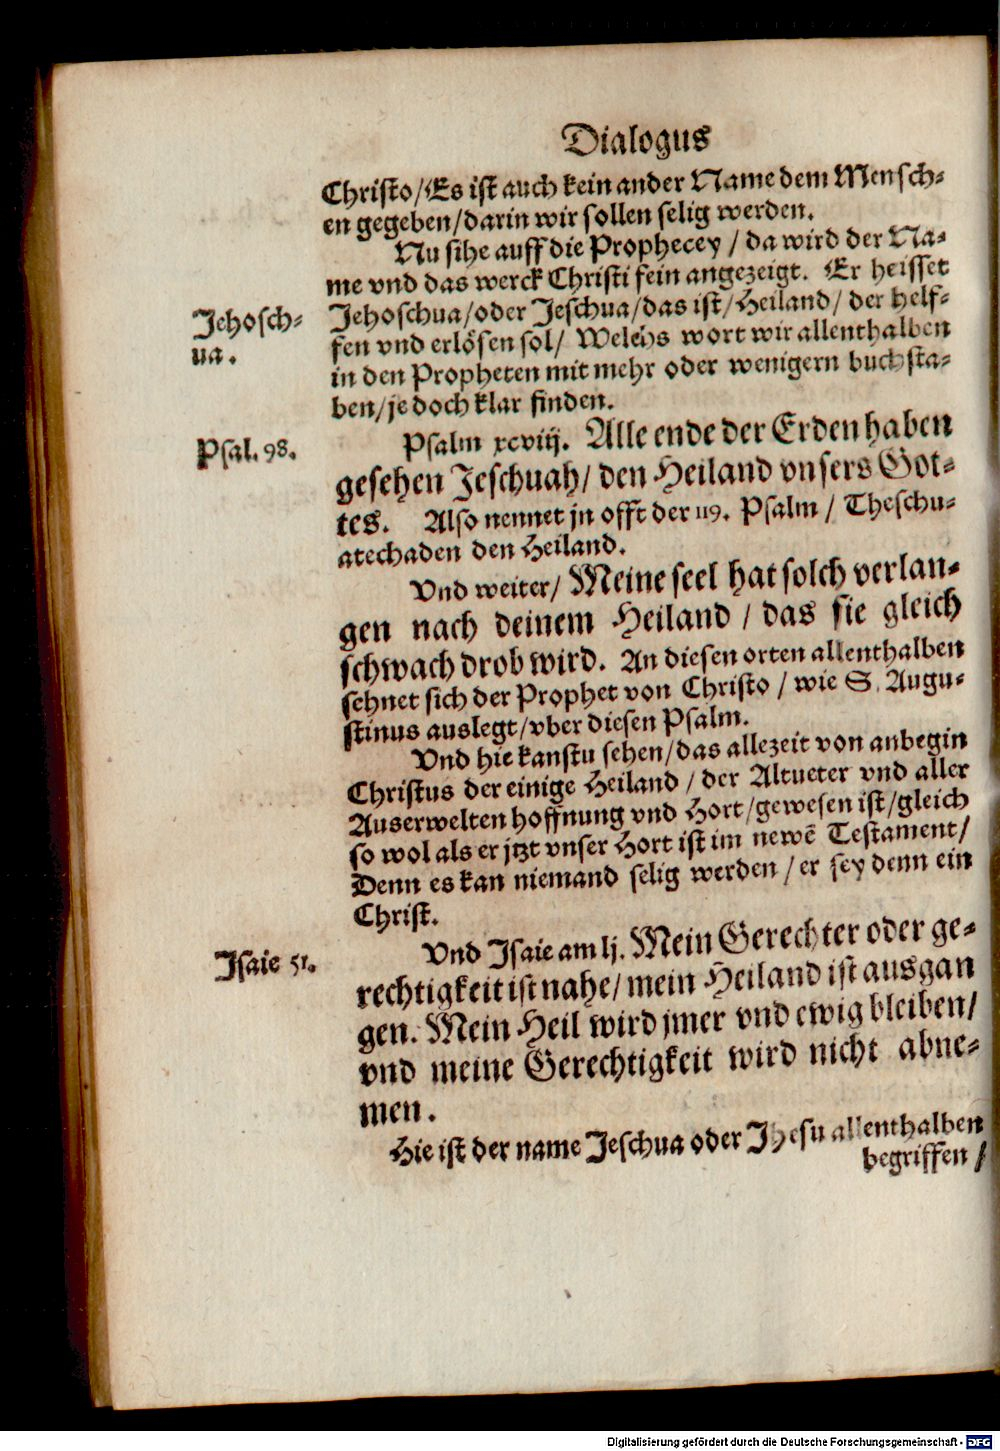 Dialogus
Christo/Es ist auch kein ander Name dem Mensch-
en gegeben/darin wir sollen selig werden.
Nu sihe auff die Prophecey / da wird der Na-
me vnd das werck Christi fein angezeigt. Er heisset
Jehosch-
ua.
Jehoschua/oder Jeschua/das ist/Heiland/ der helf-
fen vnd erlösen sol/ Welchs wort wir allenthalben
in den Propheten mit mehr oder wenigern buchsta-
ben/je doch klar finden.
Psal. 98.
Psalm xcviij. Alle ende der Erden haben
gesehen Jeschuah/ den Heiland vnsers Got-
tes. Also nennet jn offt der 119. Psalm / Theschu-
atechaden den Heiland.
Vnd weiter/ Meine seel hat solch verlan-
gen nach deinem Heiland / das sie gleich
schwach drob wird. An diesen orten allenthalben
sehnet sich der Prophet von Christo / wie S. Augu-
stinus auslegt/vber diesen Psalm.
Vnd hie kanstu sehen/das allezeit von anbegin
Christus der einige Heiland / der Altueter vnd aller
Auserwelten hoffnung vnd Hort/gewesen ist/gleich
so wol als er jtzt vnser Hort ist im newē Testament/
Denn es kan niemand selig werden / er sey denn ein
Christ.
Isaie 51.
Vnd Isaie am lj. Mein Gerechter oder ge-
rechtigkeit ist nahe/ mein Heiland ist ausgan
gen. Mein Heil wird jmer vnd ewig bleiben/
vnd meine Gerechtigkeit wird nicht abne-
men.
Hie ist der name Jeschua oder Jhesu allenthalben
begriffen /
Digitalisierung gefördert durch die Deutsche Forschungsgemeinschaft - DFG